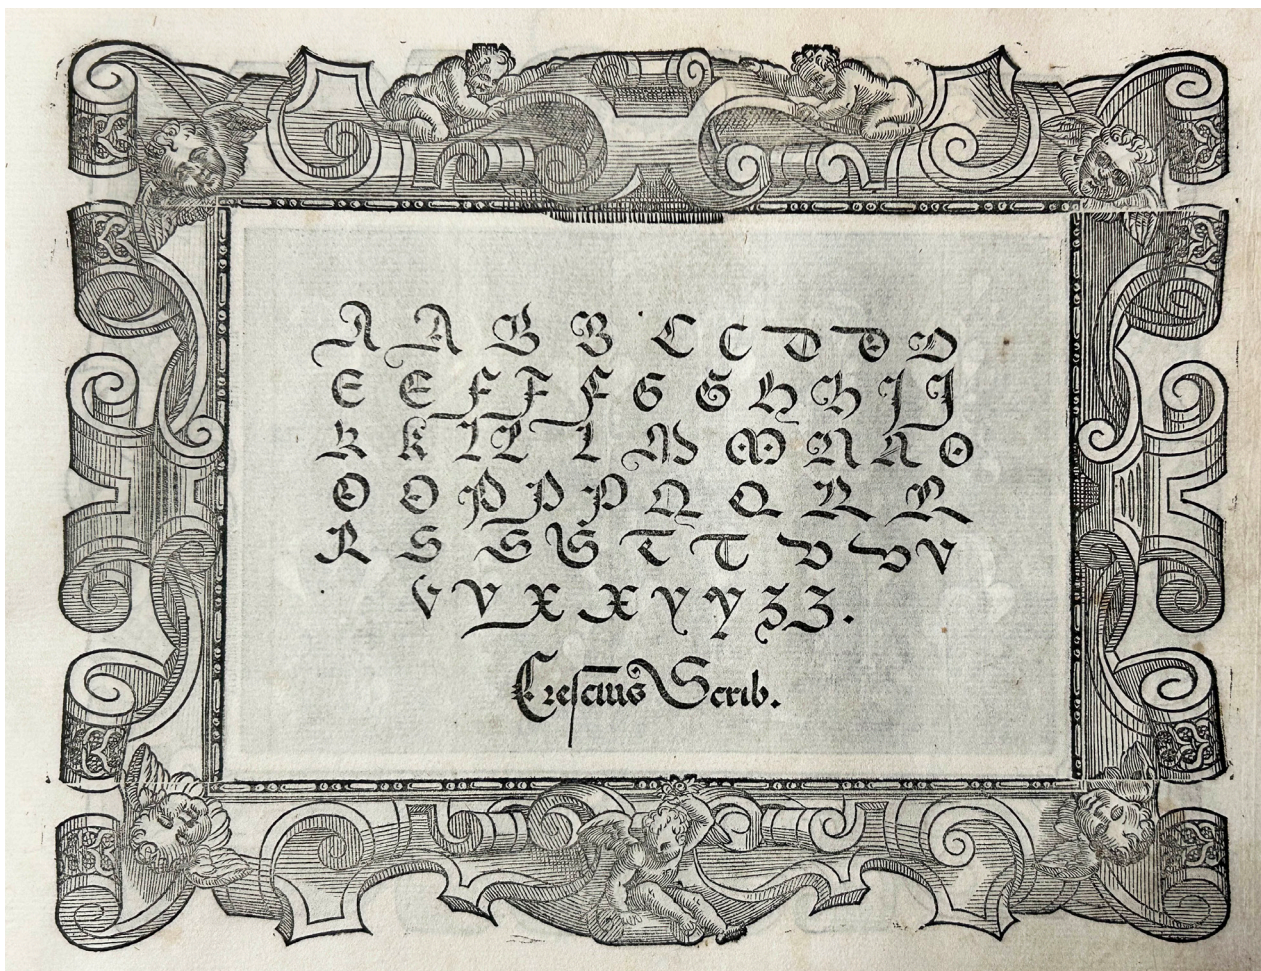 A A B B C C D D D
E E F F F G G H H I I
K K L L L M M N N O
O O P P P Q Q R R
R S S S T T V V V
V V X X Y Y Z Z.
Cresciius Scrib.